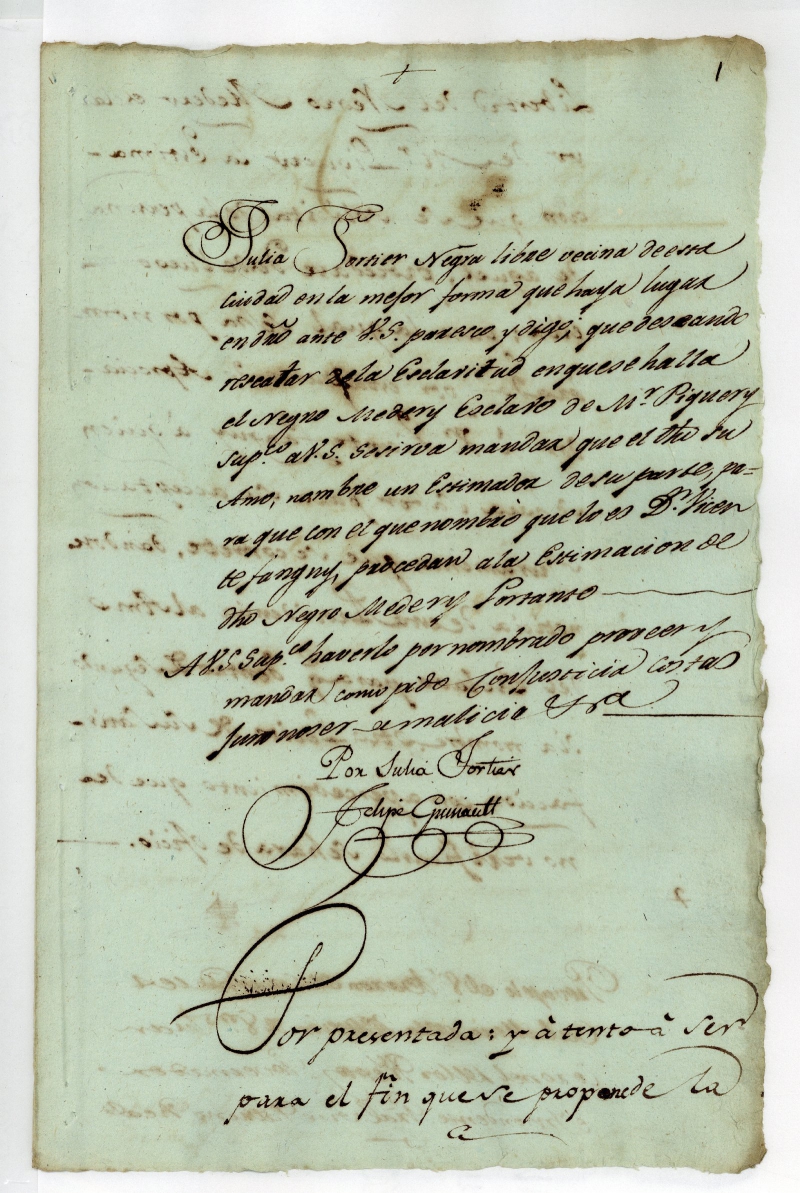 1
Julia Fortier Negra libre vecina de esta
ciudad en la mejor forma que haya lugar
en dro ante V.S. paresco y digo; que deseando
rescatar de la Esclavitud en que se halla
el Negro Medery Esclavo de Mr. Piquery
sup.co a V.S. se sirva mandar que el dho su
Amo, nombre un Estimador de su parte, pa=
ra que con el que nombro que lo es Dn. Vicen
te fanguy, procedan a la Estimacion de
dho Negro Medery Portanto
A V.S. Sup.co haverlo por nombrado proveer y
mandar como pido Con Justicia costas
Juro no ser de malicia &ra
Por Julia Fortier
Felipe Guinault
Por presentada: y â tento â ser
para el fin que se propone de la